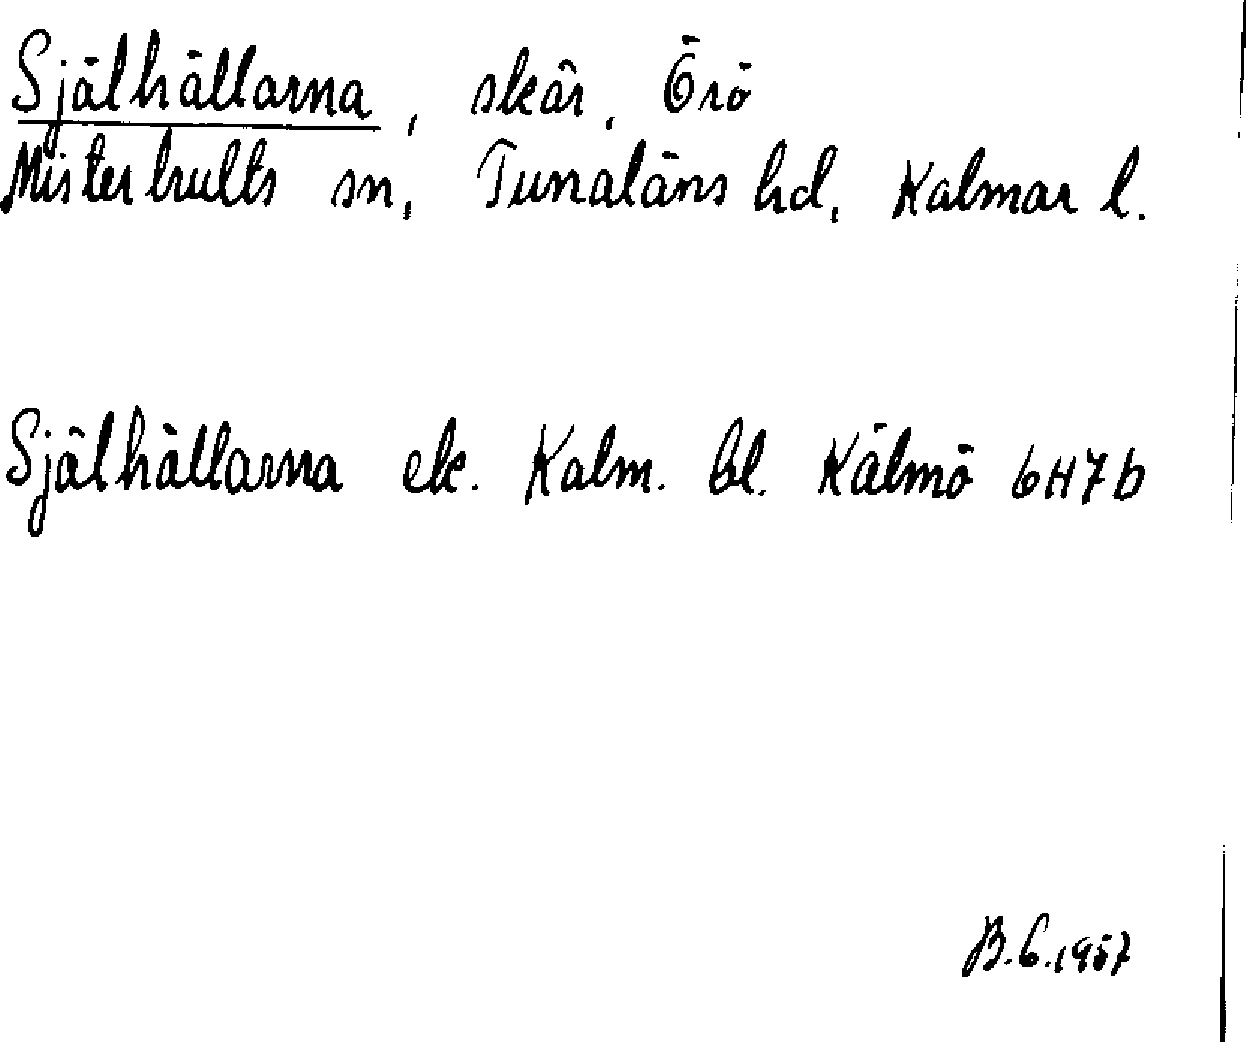 Själhällarna, skär, Örö
Misterhults sn, Tunaläns hd, Kalmar l.
Själhällarna ek. Kalm. bl. Kälmö 6H7b
B.G. 1957